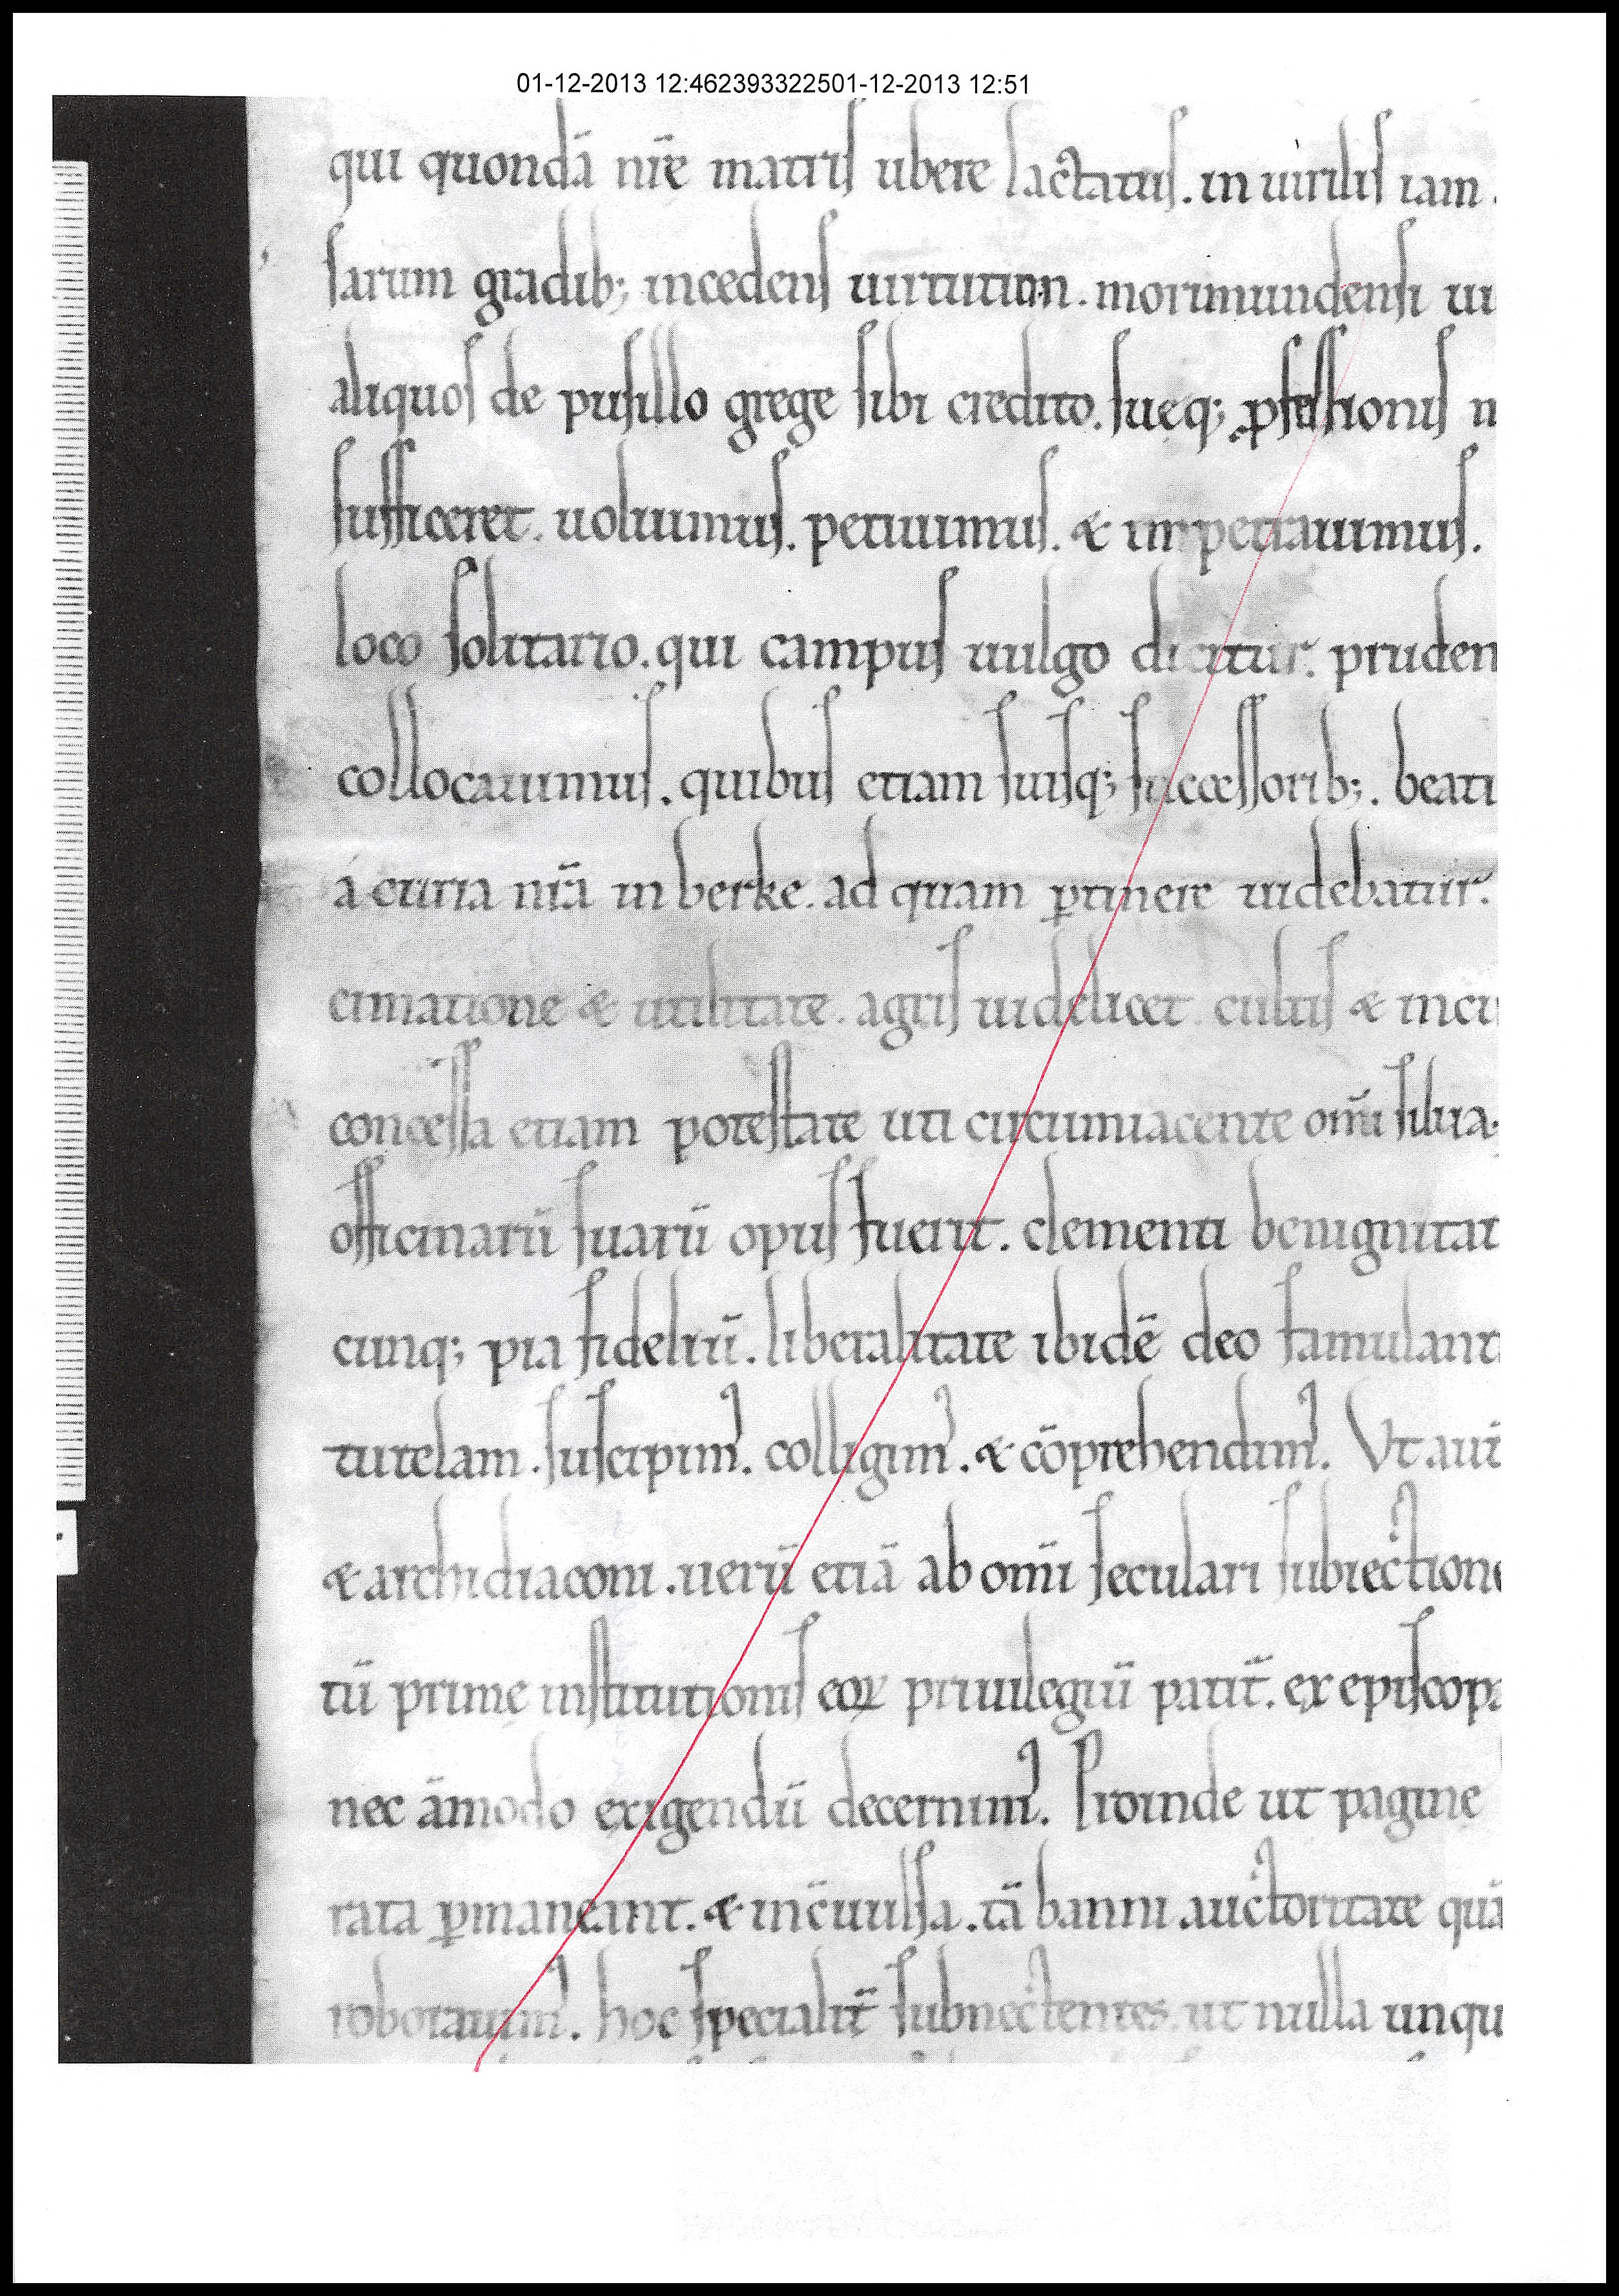 01-12-2013 12:462393322501-12-2013 12:51
qui quondā nr̄e matris ubere lactatus. in uirilis iam.
sarum gradib; incedens uirtutum. morimundensi ui
aliquos de pusillo grege sibi credito. sueq; ꝓfessionis
sufficeret. uoluimus. petiuimus. & impetrauimus.
loco solitario. qui campus uulgo dicitur. pruden
collocauimus. quibus etiam suisq; successorib;. beati
á curia nr̄a in berke. ad quam ꝑtinere uidebatur.
cimatione & utilitate. agris uidelicet. cultis & incu
concessa etiam potestate uti circumiacente om̄i silua.
officinarū suarū opus fuerit. clementi benignitat
cunq; pia fideliū. liberalitate ibidē deo famulant
tutelam. suscipim᾽. colligim᾽. & cōprehendim᾽. Vt aut̄
& archidiaconi. uerū etiā ab om̄i seculari subiectione
tū prime institutionis eoꝝ priuilegiū patit᷑. ex episcopa
nec āmodo exigendū decernim᾽. Proinde ut pagine
rata ꝑmaneant. & incōuulsa. tā banni auctoritate quā
roborauim᾽. hoc specialit̄ subnectentes. ut nulla unqu